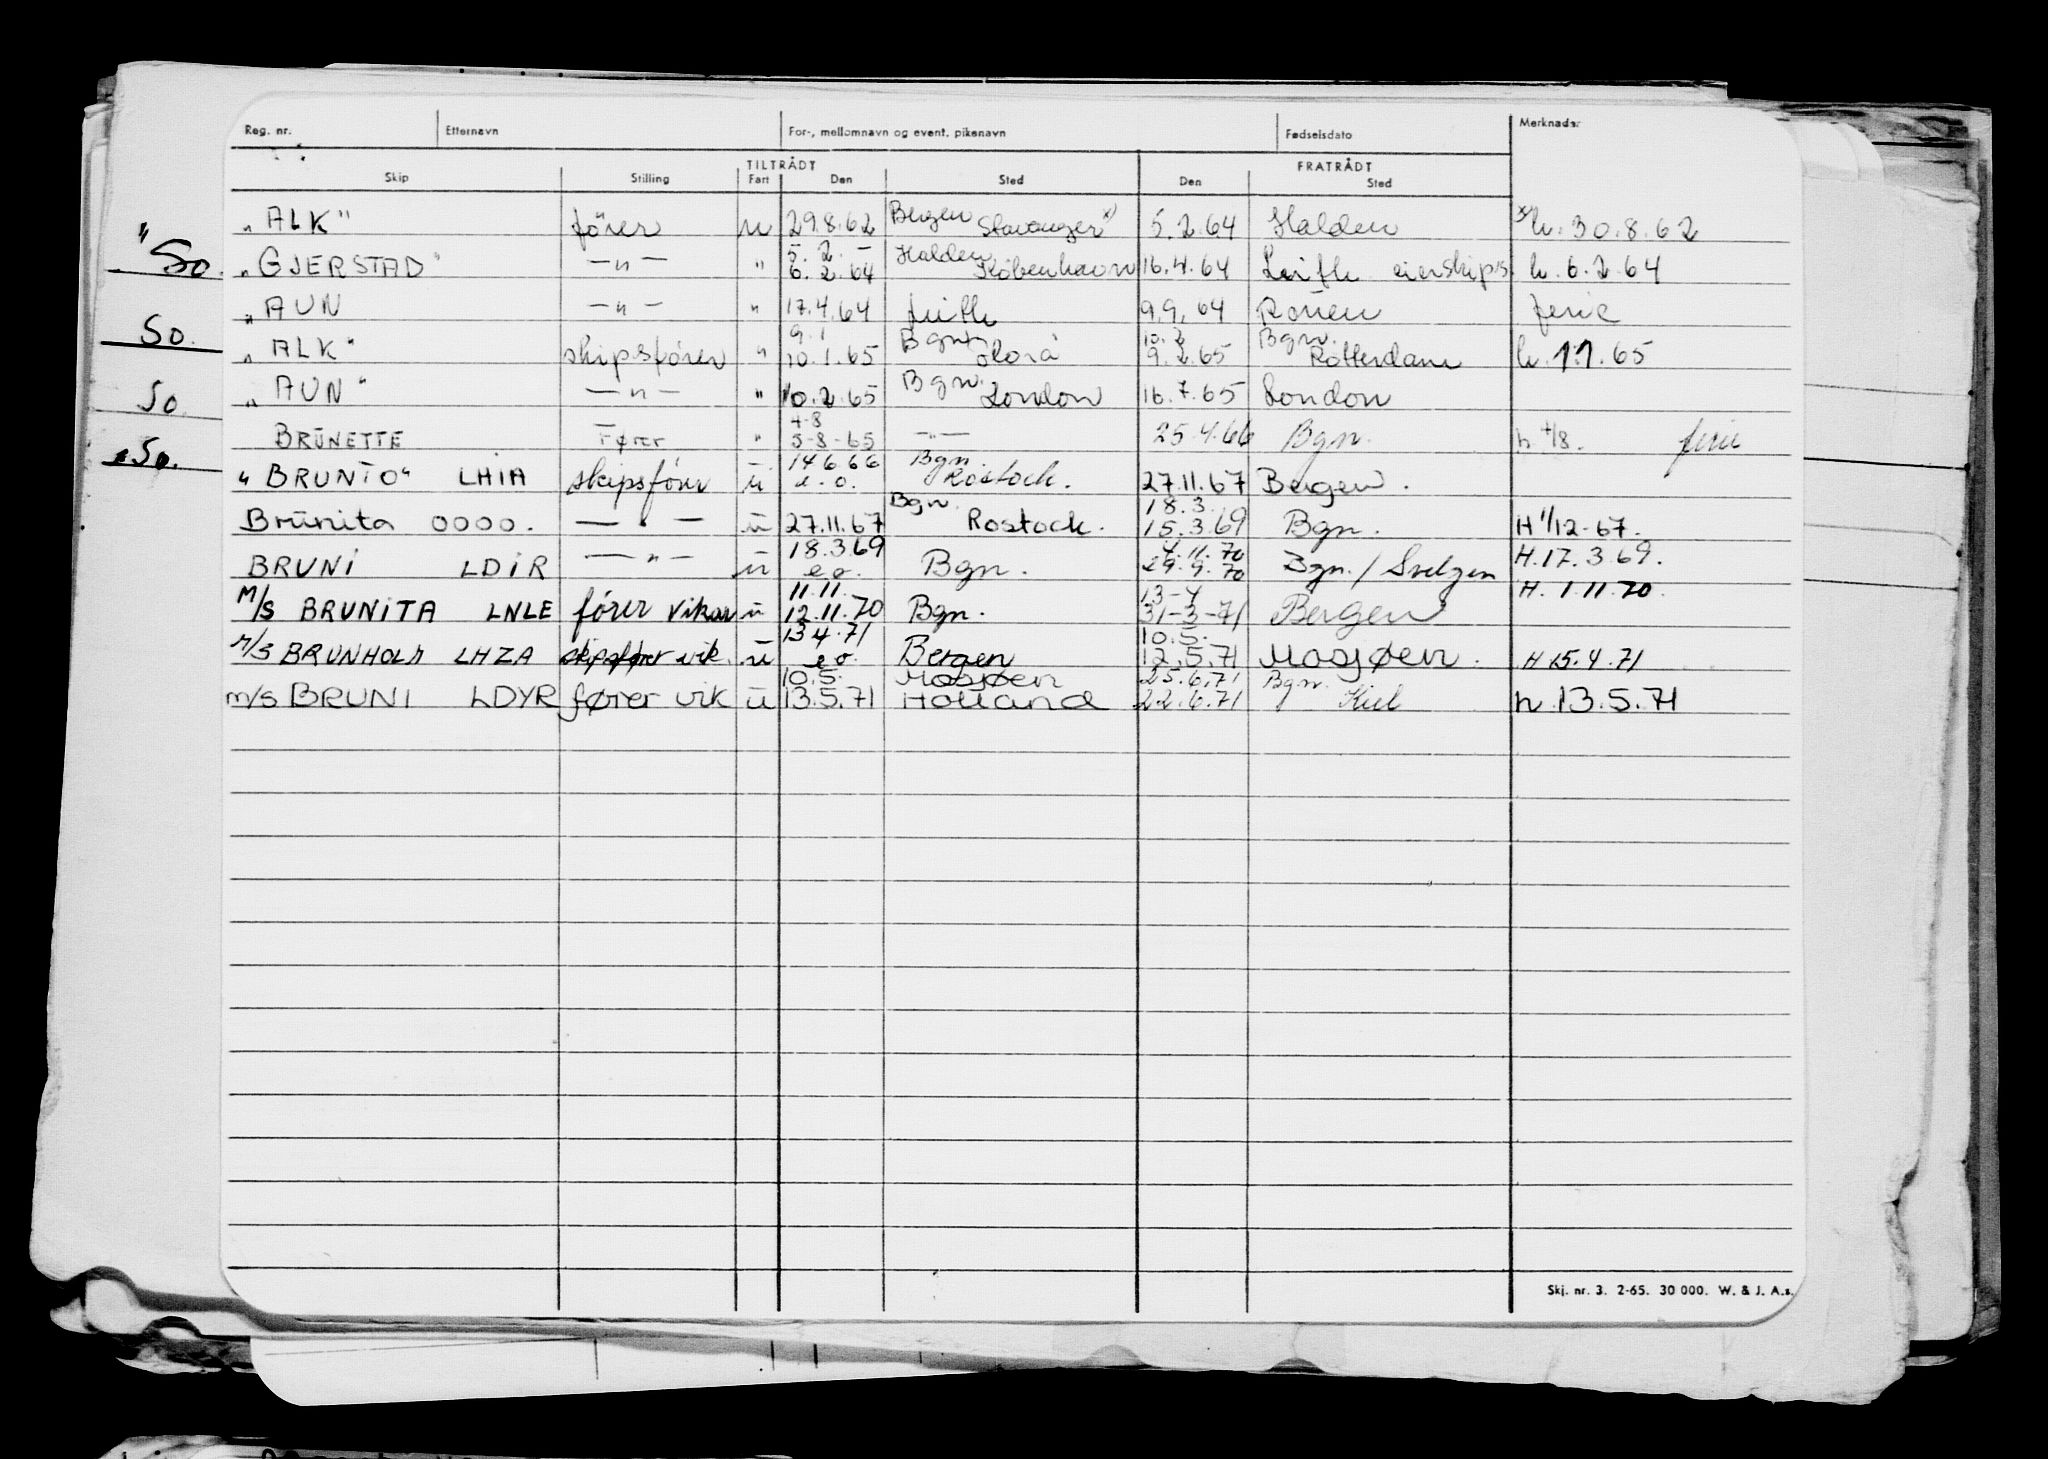 Reg. nr. Etternavn For-, mellomnavn og event. pikenavn Fødselsdato Merknader
TILTRÅDT FRATRÅDT
Skip Stilling Fart Den Sted Den Sted
"ALK" fører u 29.8.62 Bergen Stavanger x) 5.2.64 Halden x) h. 30.8.62
"So. "GJERSTAD" —"— " 5.2.- 6.2.64 Halden København 16.4.64 Leith eierskips. h. 6.2.64
"AUN —"— " 17.4.64 Leith 9.9.64 Rouen ferie
So. "ALK" skipsfører " 9.1 10.1.65 Bgn 10.2 9.2.65 Bgn. Rotterdam h. 11.65
So. "AUN" —"— " 10.2.65 Bgn. London 16.7.65 London
So. BRÜNETTE Fører " 4-8 5-8-65 —"— 25.4.66 Bgn. h 4/8. ferie
"BRUNTO" LHIA skipsfører u 14.6.66 e.o. Bgn. Rostock. 27.11.67 Bergen.
Brünita 0000. —"— u 27.11.67 Bgn. Rostock. 18.3. 15.3.69 Bgn. H 1/12-67.
BRUNI LDIR —"— u 18.3.69 e.o. Bgn. 4.11.70 29.9.70 Bgn./Svelgen H.17.3.69.
M/S BRUNITA LNLE fører vikar u 11.11. 12.11.70 Bgn. 13-4 31-3-71 Bergen H. 1.11.70.
M/S BRUNHOLM LHZA skipsfører vik. u 13.4.71 e.o. Bergen 10.5. 12.5.71 Mosjøen. H 15.4.71
m/s BRUNI LDYR fører vik u 10.5. 13.5.71 Mosjøen Holland 25.6.71 22.6.71 Bgn. Kiel h. 13.5.71
Skj. nr. 3. 2-65. 30 000. W. & J. A.s.